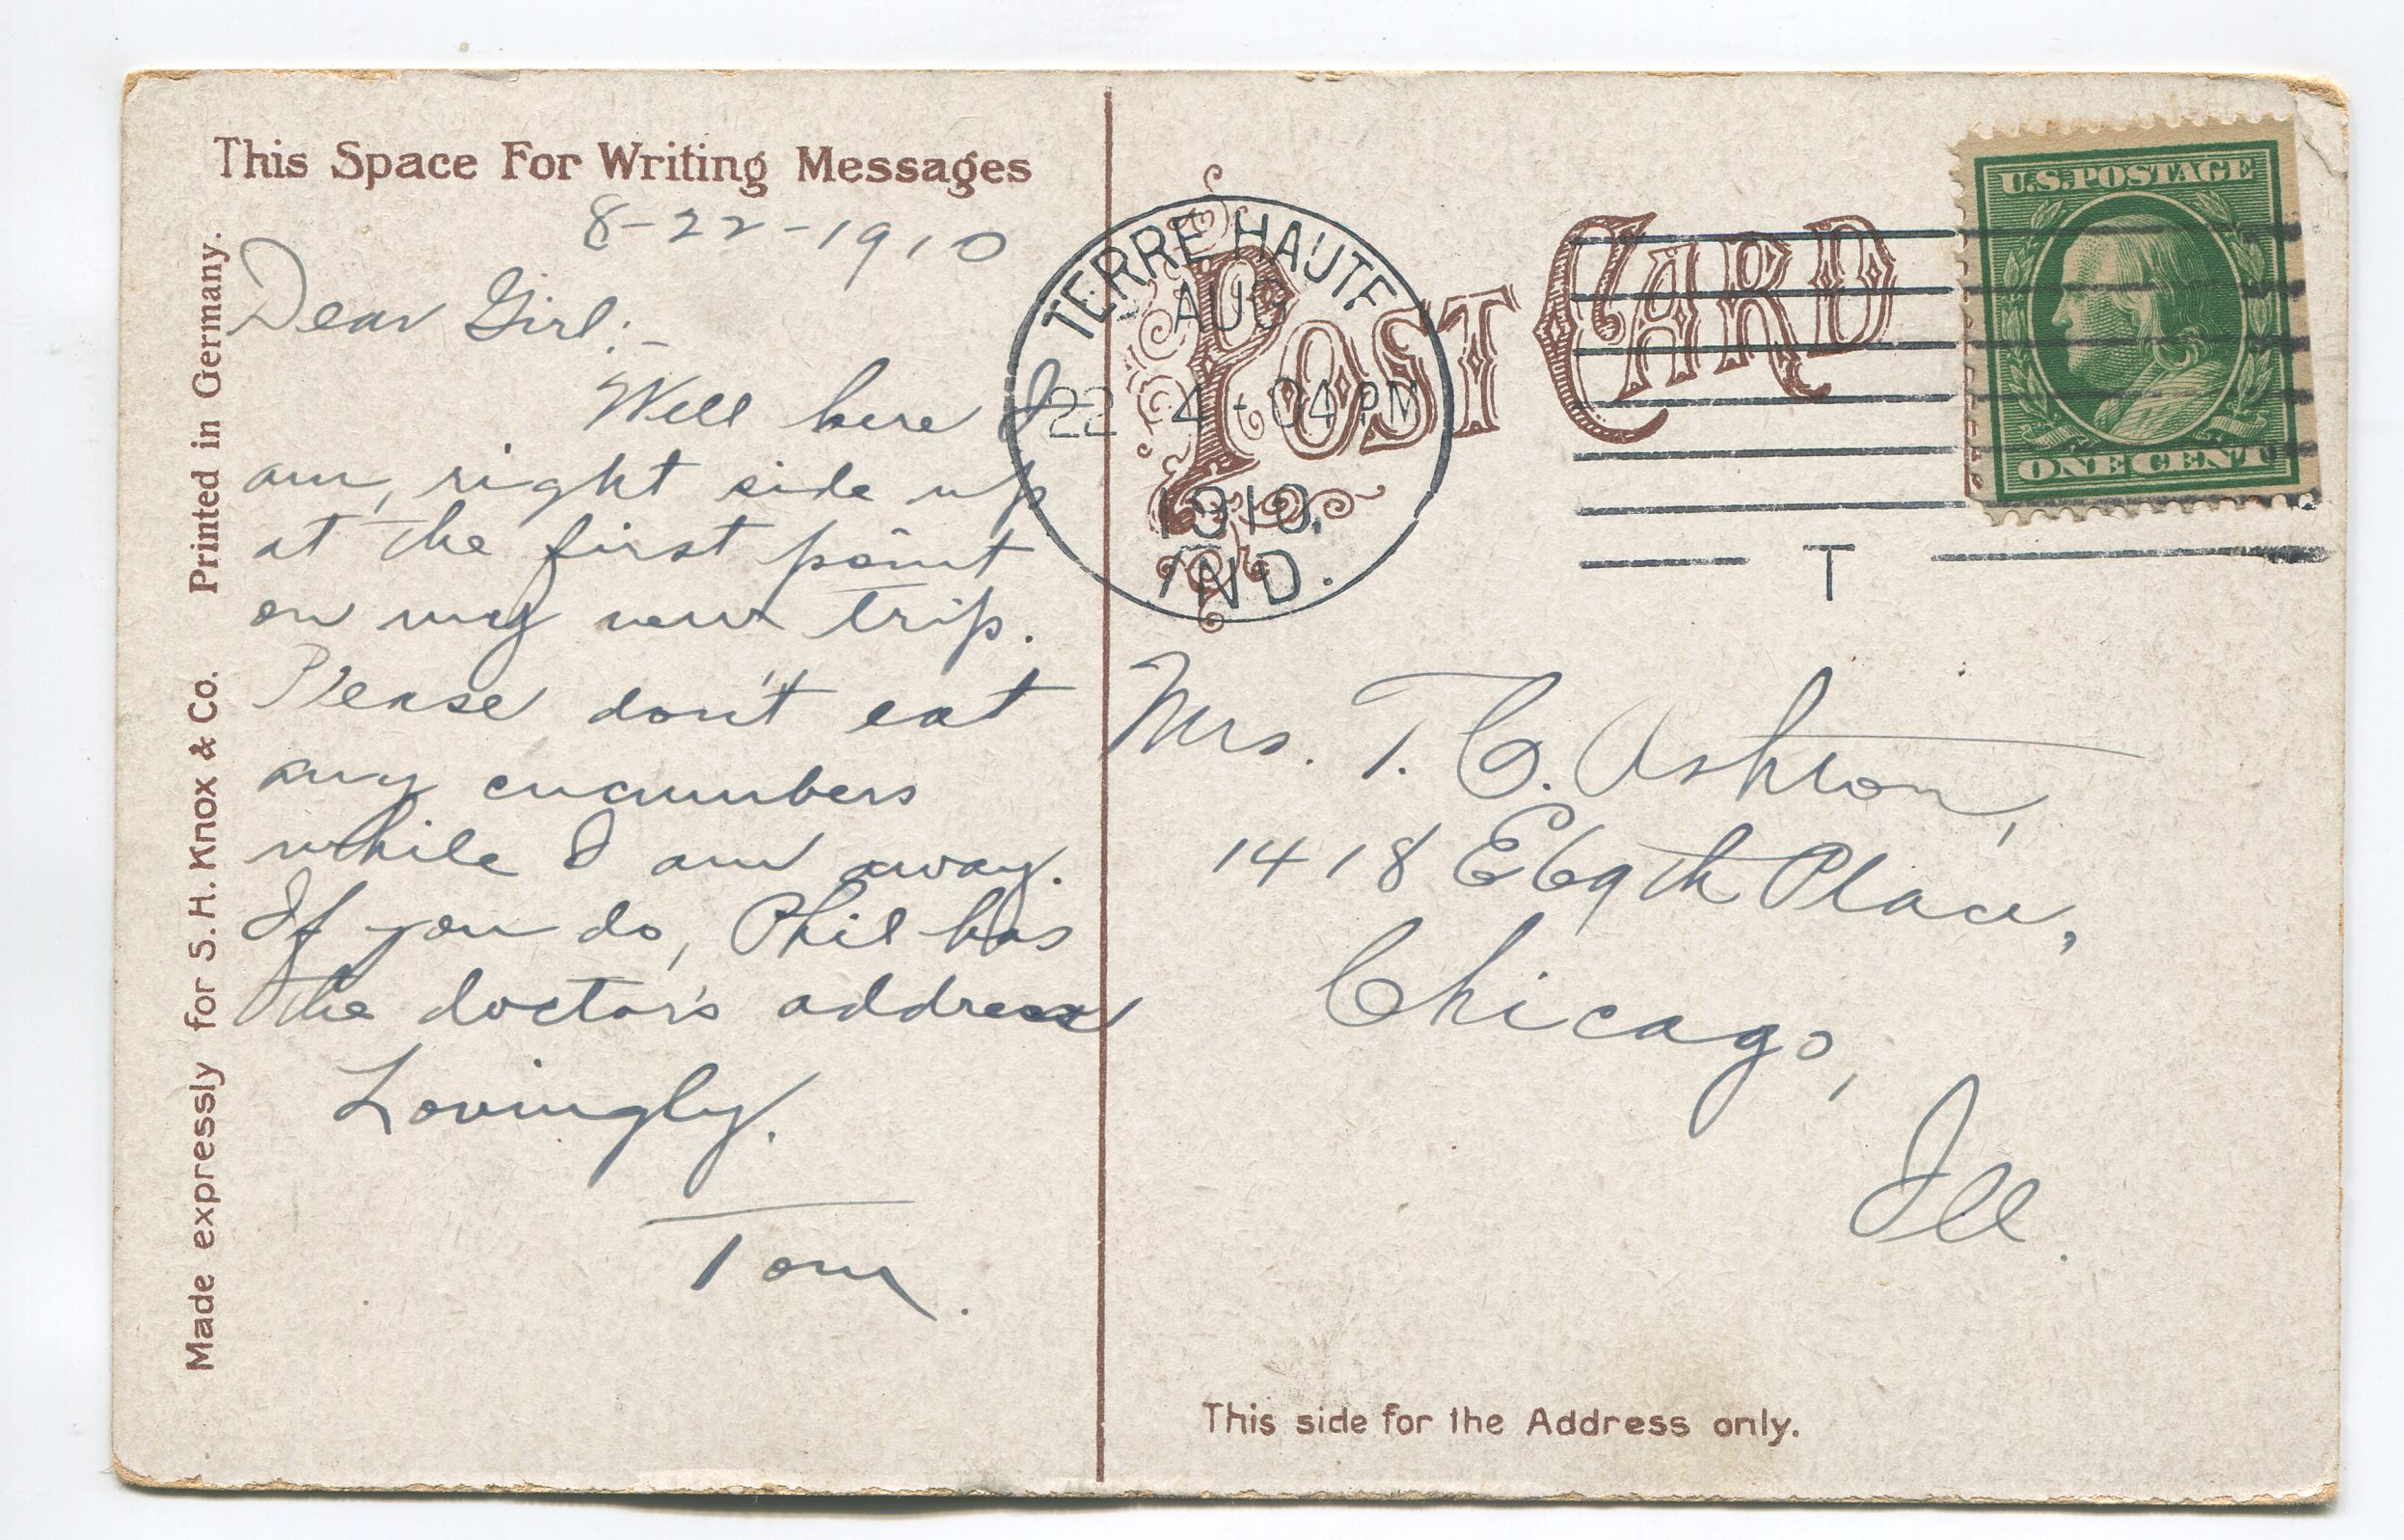 This Space For Writing Messages
8-22-1910
Dear Girl:-
Well here I
am, right side up
at the first point
on my new trip.
Please don't eat
any cucumbers
while I am away.
If you do, Phil has
the doctor's address
Lovingly.
Tom.
Made expressly for S. H. Knox & Co. Printed in Germany.
POST CARD
TERRE HAUTE
AUG
22 4-04 PM
1910.
IND.
T
U.S. POSTAGE
ONE CENT
Mrs. T. C. Ashton,
1418 E 69th Place,
Chicago,
Ill.
This side for the Address only.